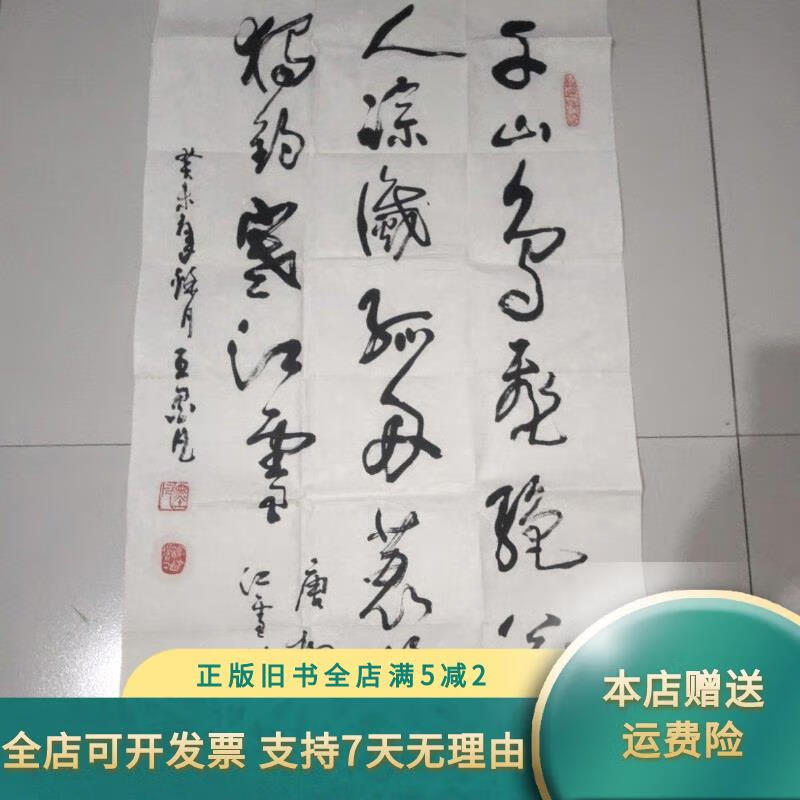 千山鸟飞绝
人踪灭孤舟蓑
独钓寒江雪
唐
江雪
癸未年
月王墨
正版旧书全店满5减2
全店可开发票 支持7天无理由
本店赠送
运费险